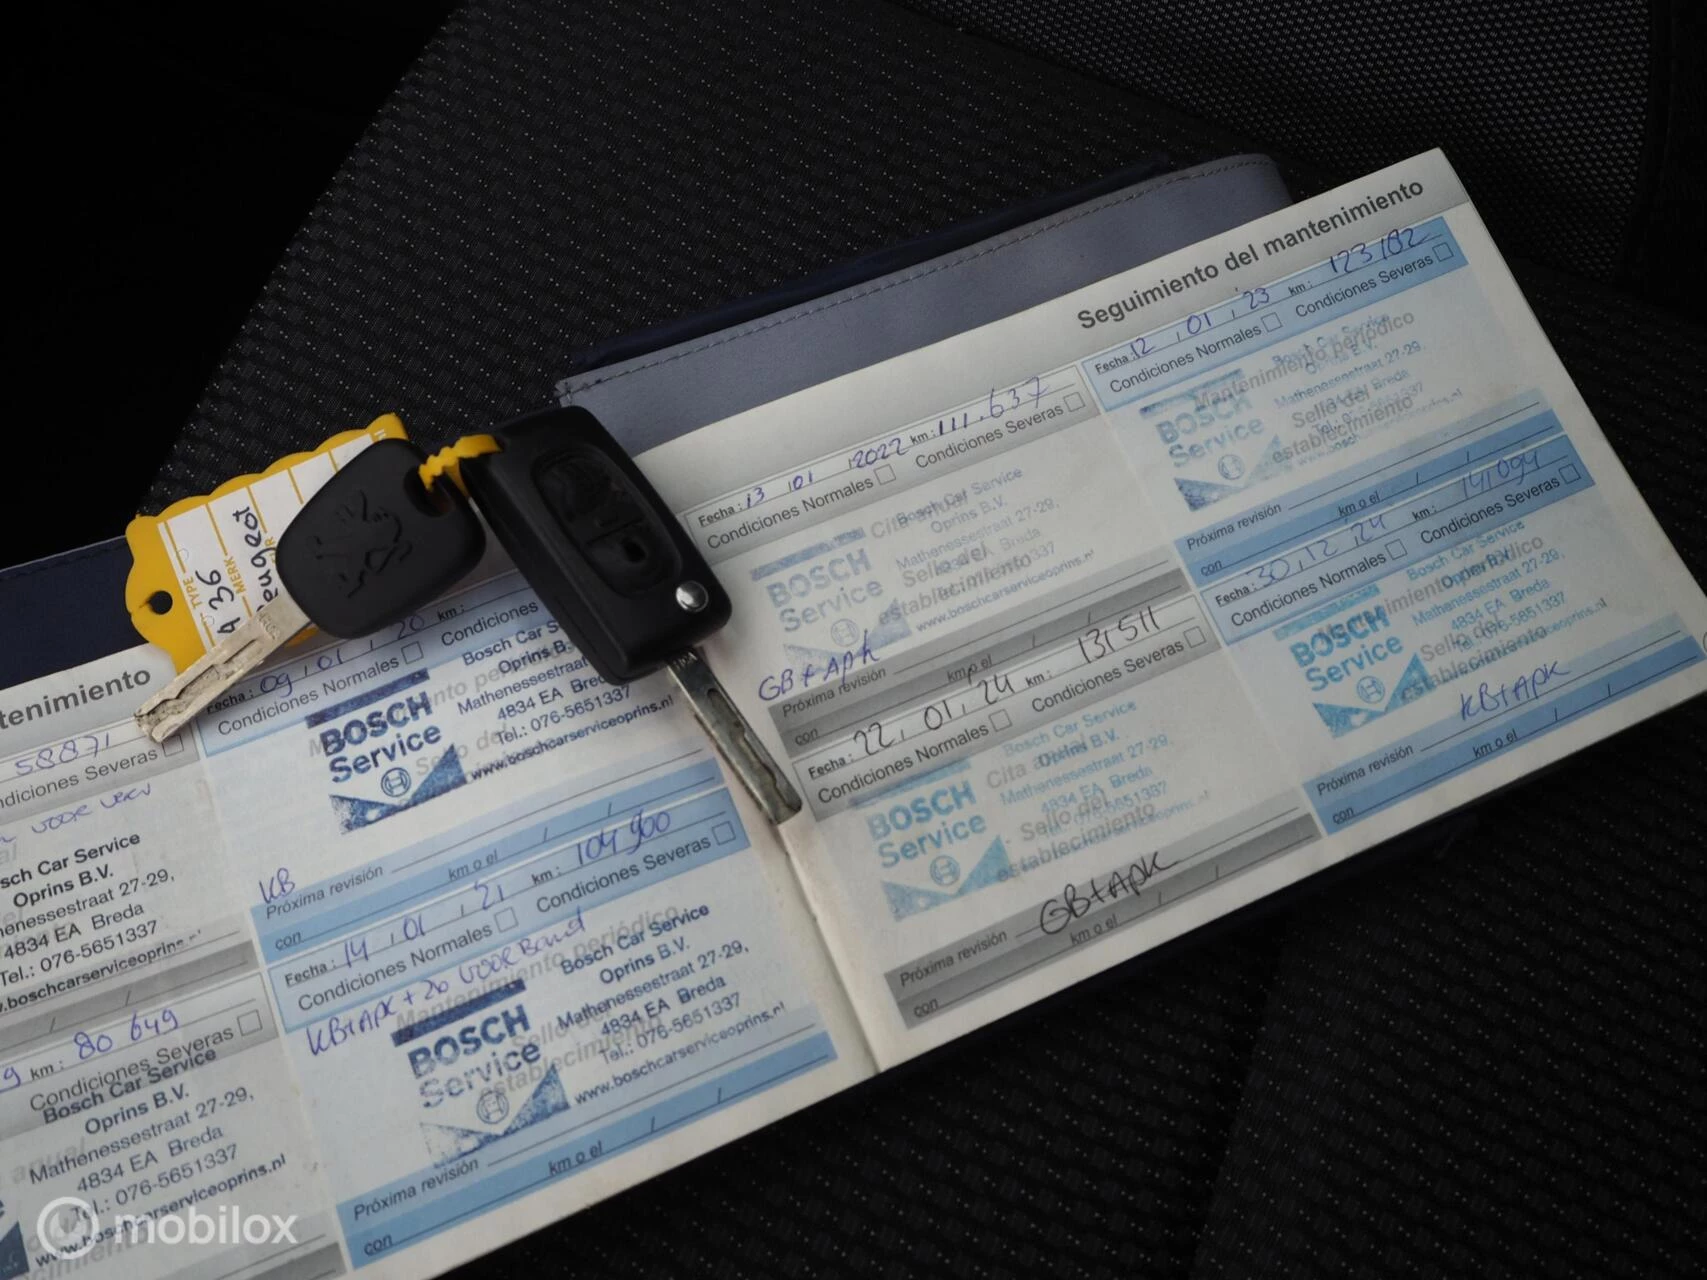 TYPE
MERK
Peugeot
436
tenimiento
58871
ndiciones Severas
sch Car Service
Oprins B.V.
henessestraat 27-29,
4834 EA Breda
Tel.: 076-5651337
w.boschcarserviceoprins.nl
9 km: 80 649
Condiciones Severas
Bosch Car Service
Oprins B.V.
Mathenessestraat 27-29,
4834 EA Breda
Tel.: 076-5651337
www.boschcarserviceoprins.nl
Fecha: 09, 01, 20 km:
Condiciones Normales
Condiciones
Bosch Car Ser
Oprins B.
Mathenessestraat
4834 EA Breda
Tel.: 076-5651337
www.boschcarserviceoprins.nl
BOSCH
Service
KB
Próxima revisión
km o el / /
con
Fecha: 14, 01, 21 km: 104 900
Condiciones Normales
Condiciones Severas
KB+APK + 2b voorBand
Mantenimiento periódico
Sello del
establecimiento
Bosch Car Service
Oprins B.V.
Mathenessestraat 27-29,
4834 EA Breda
Tel.: 076-5651337
www.boschcarserviceoprins.nl
BOSCH
Service
Próxima revisión
km o el / /
con
Seguimiento del mantenimiento
Fecha: 13 01 2022 km: 111.637
Condiciones Normales
Condiciones Severas
Cita anual
Sello del
establecimiento
Bosch Car Service
Oprins B.V.
Mathenessestraat 27-29,
4834 EA Breda
www.boschcarserviceoprins.nl
BOSCH
Service
GB+APK
Próxima revisión
km o el / /
con
Fecha: 22, 01, 24 km: 131511
Condiciones Normales
Condiciones Severas
Cita anual
Sello del
establecimiento
Bosch Car Service
Oprins B.V.
Mathenessestraat 27-29,
4834 EA Breda
Tel.: 076-5651337
BOSCH
Service
GB+APK
Próxima revisión
km o el / /
con
Fecha: 12, 01, '23 km: 123182
Condiciones Normales
Condiciones Severas
Mantenimiento periódico
Sello del
establecimiento
Bosch Car Service
Oprins B.V.
Mathenessestraat 27-29,
4834 EA Breda
Tel.: 076-5651337
BOSCH
Service
Próxima revisión
km o el / /
con
Fecha: 30, 12, 24 km: 141,094
Condiciones Normales
Condiciones Severas
Mantenimiento periódico
Sello del
establecimiento
Bosch Car Service
Oprins B.V.
Mathenessestraat 27-29,
4834 EA Breda
Tel.: 076-5651337
BOSCH
Service
KB+APK
Próxima revisión
km o el / /
con
mobilox